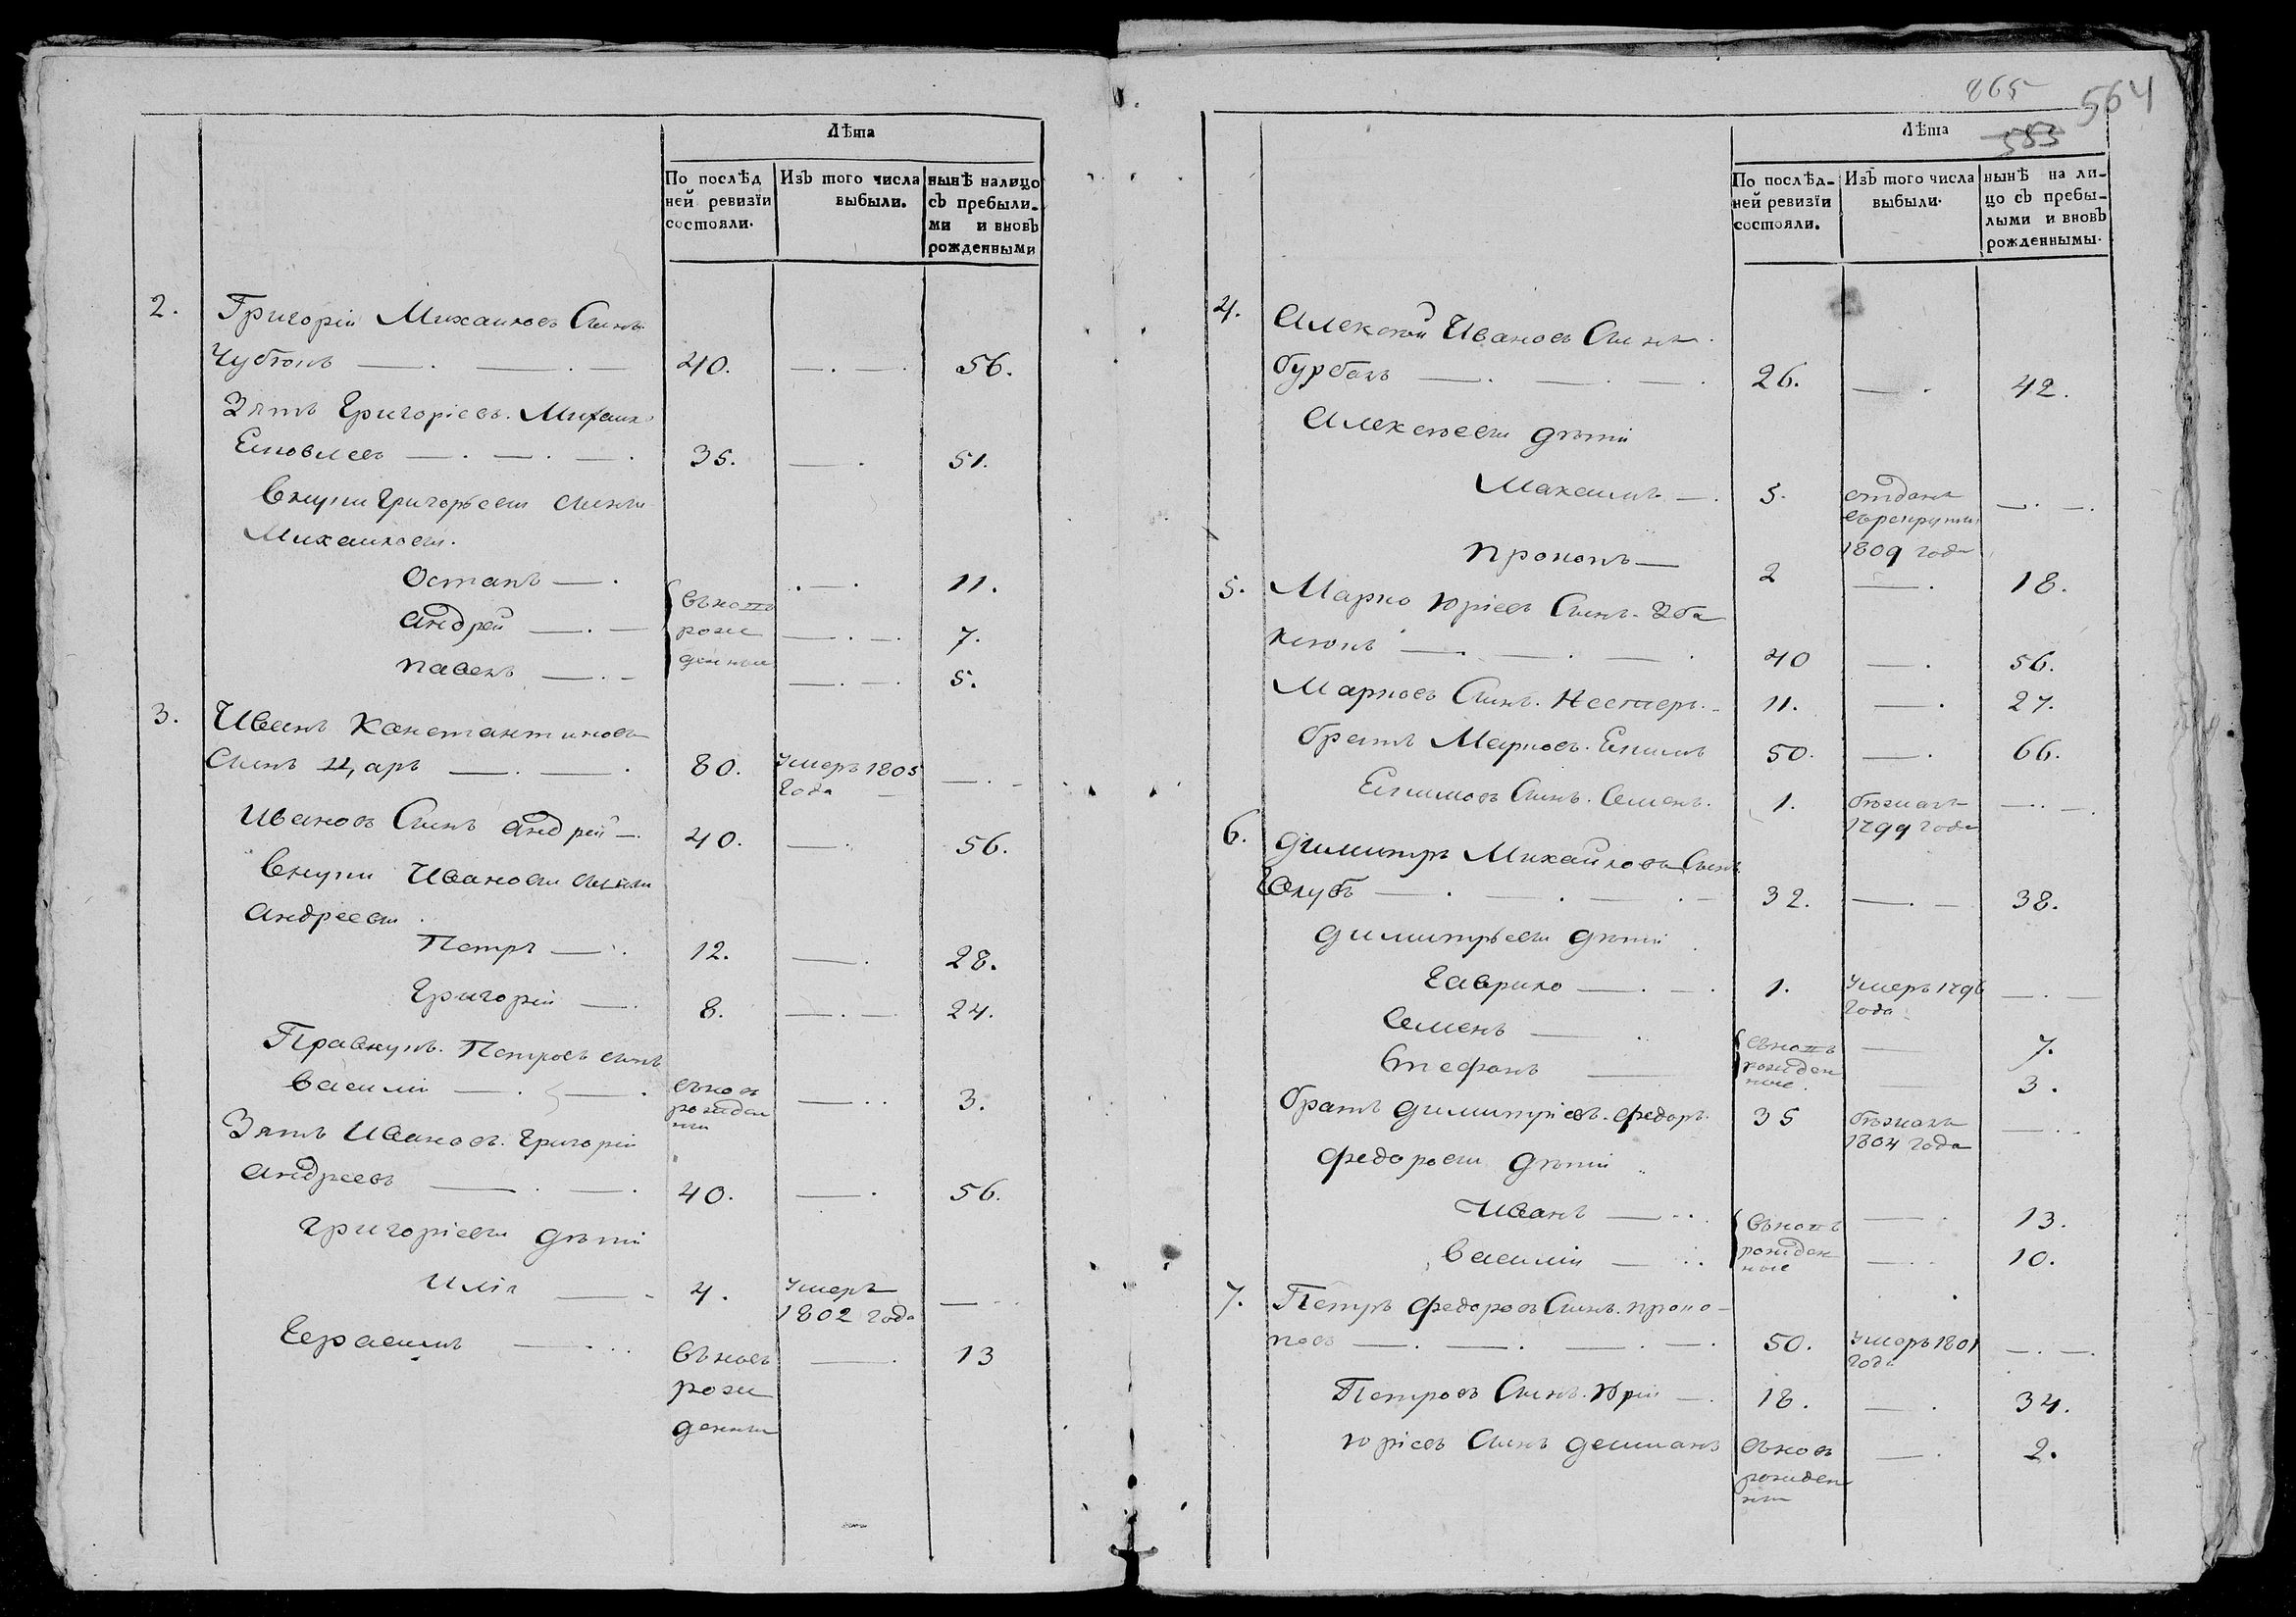 Лѣта
По послѣд
ней ревизїи
состояли.
Изъ того числа
выбыли.
нынѣ налицо
съ пребыли-
ми и вновъ
рожденными
2. Григорій Михаиловъ Синъ
40. 56.
Зять Григоріевъ. Михаил
35. 51.
внуки Григорьеви сини
Михаилови.
Остапъ 11.
вновъ
рож
денніи
Андрей 7.
Павелъ 5.
3. Иванъ Константиновъ
Синъ Царъ 80. Умеръ 1805
года
Ивановъ Синъ Андрей 40. 56.
внуки Иванови сини
Андрееви
Петръ 12. 28.
Григорій 8. 24.
Правнукъ. Петровъ синъ
Василій вновъ 3.
рожден
ни
Зять Ивановъ. Григорій
Андреевъ 40. 56.
Григоріеви дѣти
Илія 4. Умеръ
1802 года
Герасимъ вновъ 13
рож
денни
865 564
583
Лѣта
По послѣд-
ней ревизїи
состояли.
Изъ того числа
выбыли.
нынѣ на ли-
цо съ пребы-
лыми и вновъ
рожденнымы.
4. Алексѣй Ивановъ Синъ
26. 42.
Алексѣеви дѣти
Максимъ 5. отданъ
въ рекрути
1809 года
Прокопъ 2 18.
5. Марко Юріевъ Синъ
40 56.
Марковъ Синъ. Нестеръ 11. 27.
братъ Марковъ. Екимъ 50. 66.
Екимовъ Синъ. Семенъ. 1. бѣжалъ
1799 года
6. Димитръ Михайловъ Синъ
Голубъ 32. 38.
Димитрьеви дѣти
Гаврило 1. Умеръ 1796
года
Семенъ вновъ 7.
рожден
ные.
Стефанъ 3.
братъ Димитріевъ. Федоръ 35 бѣжалъ
1804 года
Федорови дѣти
Иванъ вновъ 13.
рожден
ные
Василій 10.
7. Петръ Федоровъ Синъ. Проко-
повъ 50. Умеръ 1801
года
Петровъ Синъ. Юрій 18. 34.
Юріевъ Синъ Демианъ вновъ 2.
рожден
ни